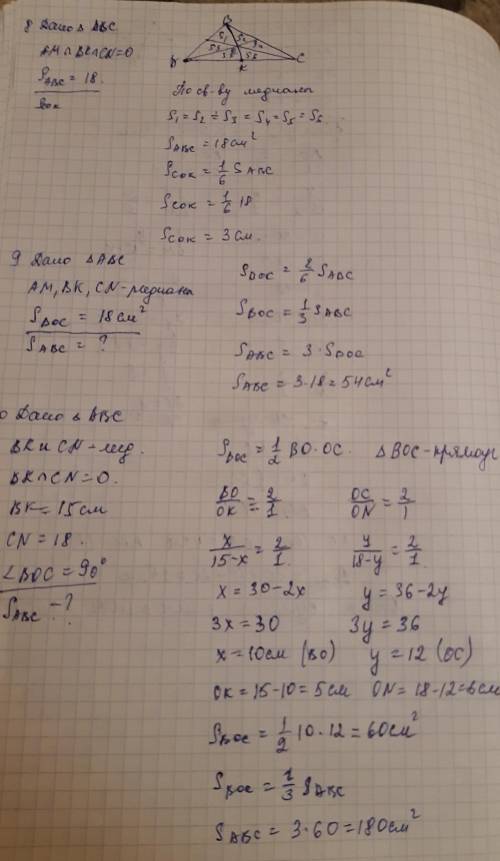 8 Дано △ ABC
AM∩BK∩CN=O
S ABC = 18.
S COK
B
S1 S2
S3 S4
O
S5
A K C
По св-ву медианы
S1 = S2 = S3 = S4 = S5 = S6
S ABC = 18 см²
S COK = 1/6 S ABC
S COK = 1/6 18
S COK = 3 см.
9 Дано △ABC
AM, BK, CN - медианы
S BOC = 18 см²
S ABC = ?
S BOC = 2/6 S ABC
S BOC = 1/3 S ABC
S ABC = 3 · S BOC
S ABC = 3·18 = 54 см²
0 Дано △ ABC
BK и CN - мед.
BK∩CN = O.
BK = 15 см
CN = 18.
∠BOC = 90°
S ABC - ?
S BOC = 1/2 BO·OC. △ BOC - прямоуг
BO/OK = 2/1 OC/ON = 2/1
x/15-x = 2/1 y/18-y = 2/1
x = 30-2x y = 36-2y
3x = 30 3y = 36
x = 10 см (BO) y = 12 (OC)
OK = 15-10 = 5 см ON = 18-12 = 6 см
S BOC = 1/2 10·12 = 60 см²
S BOC = 1/3 S ABC
S ABC = 3·60 = 180 см²